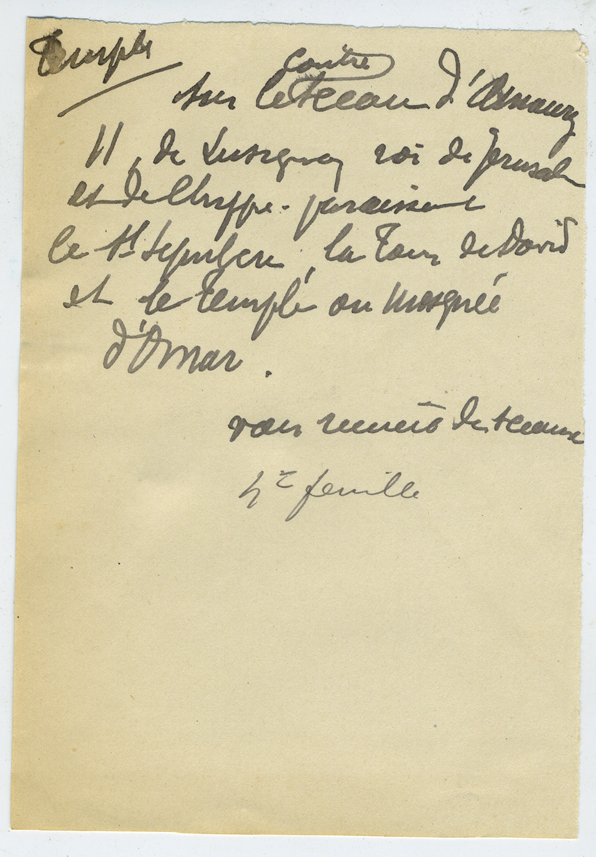 Temple
contre
sur le sceau d'Amaury
II, de Lusignan roi de Jérusalem
et de Chypre - paraissent
le St Sepulcre, la Tour de David
et le Temple ou Mosquée
d'Omar.
des sceaux
4e feuille